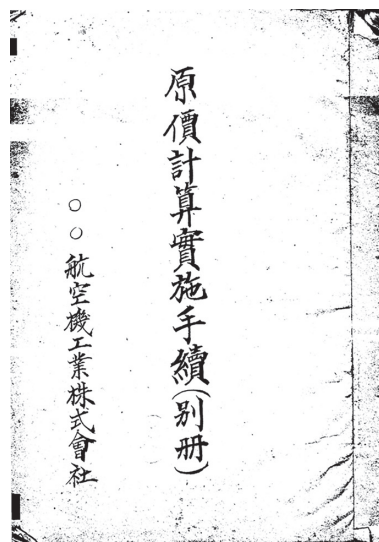 原價計算實施手續(別册)
○○航空機工業株式會社